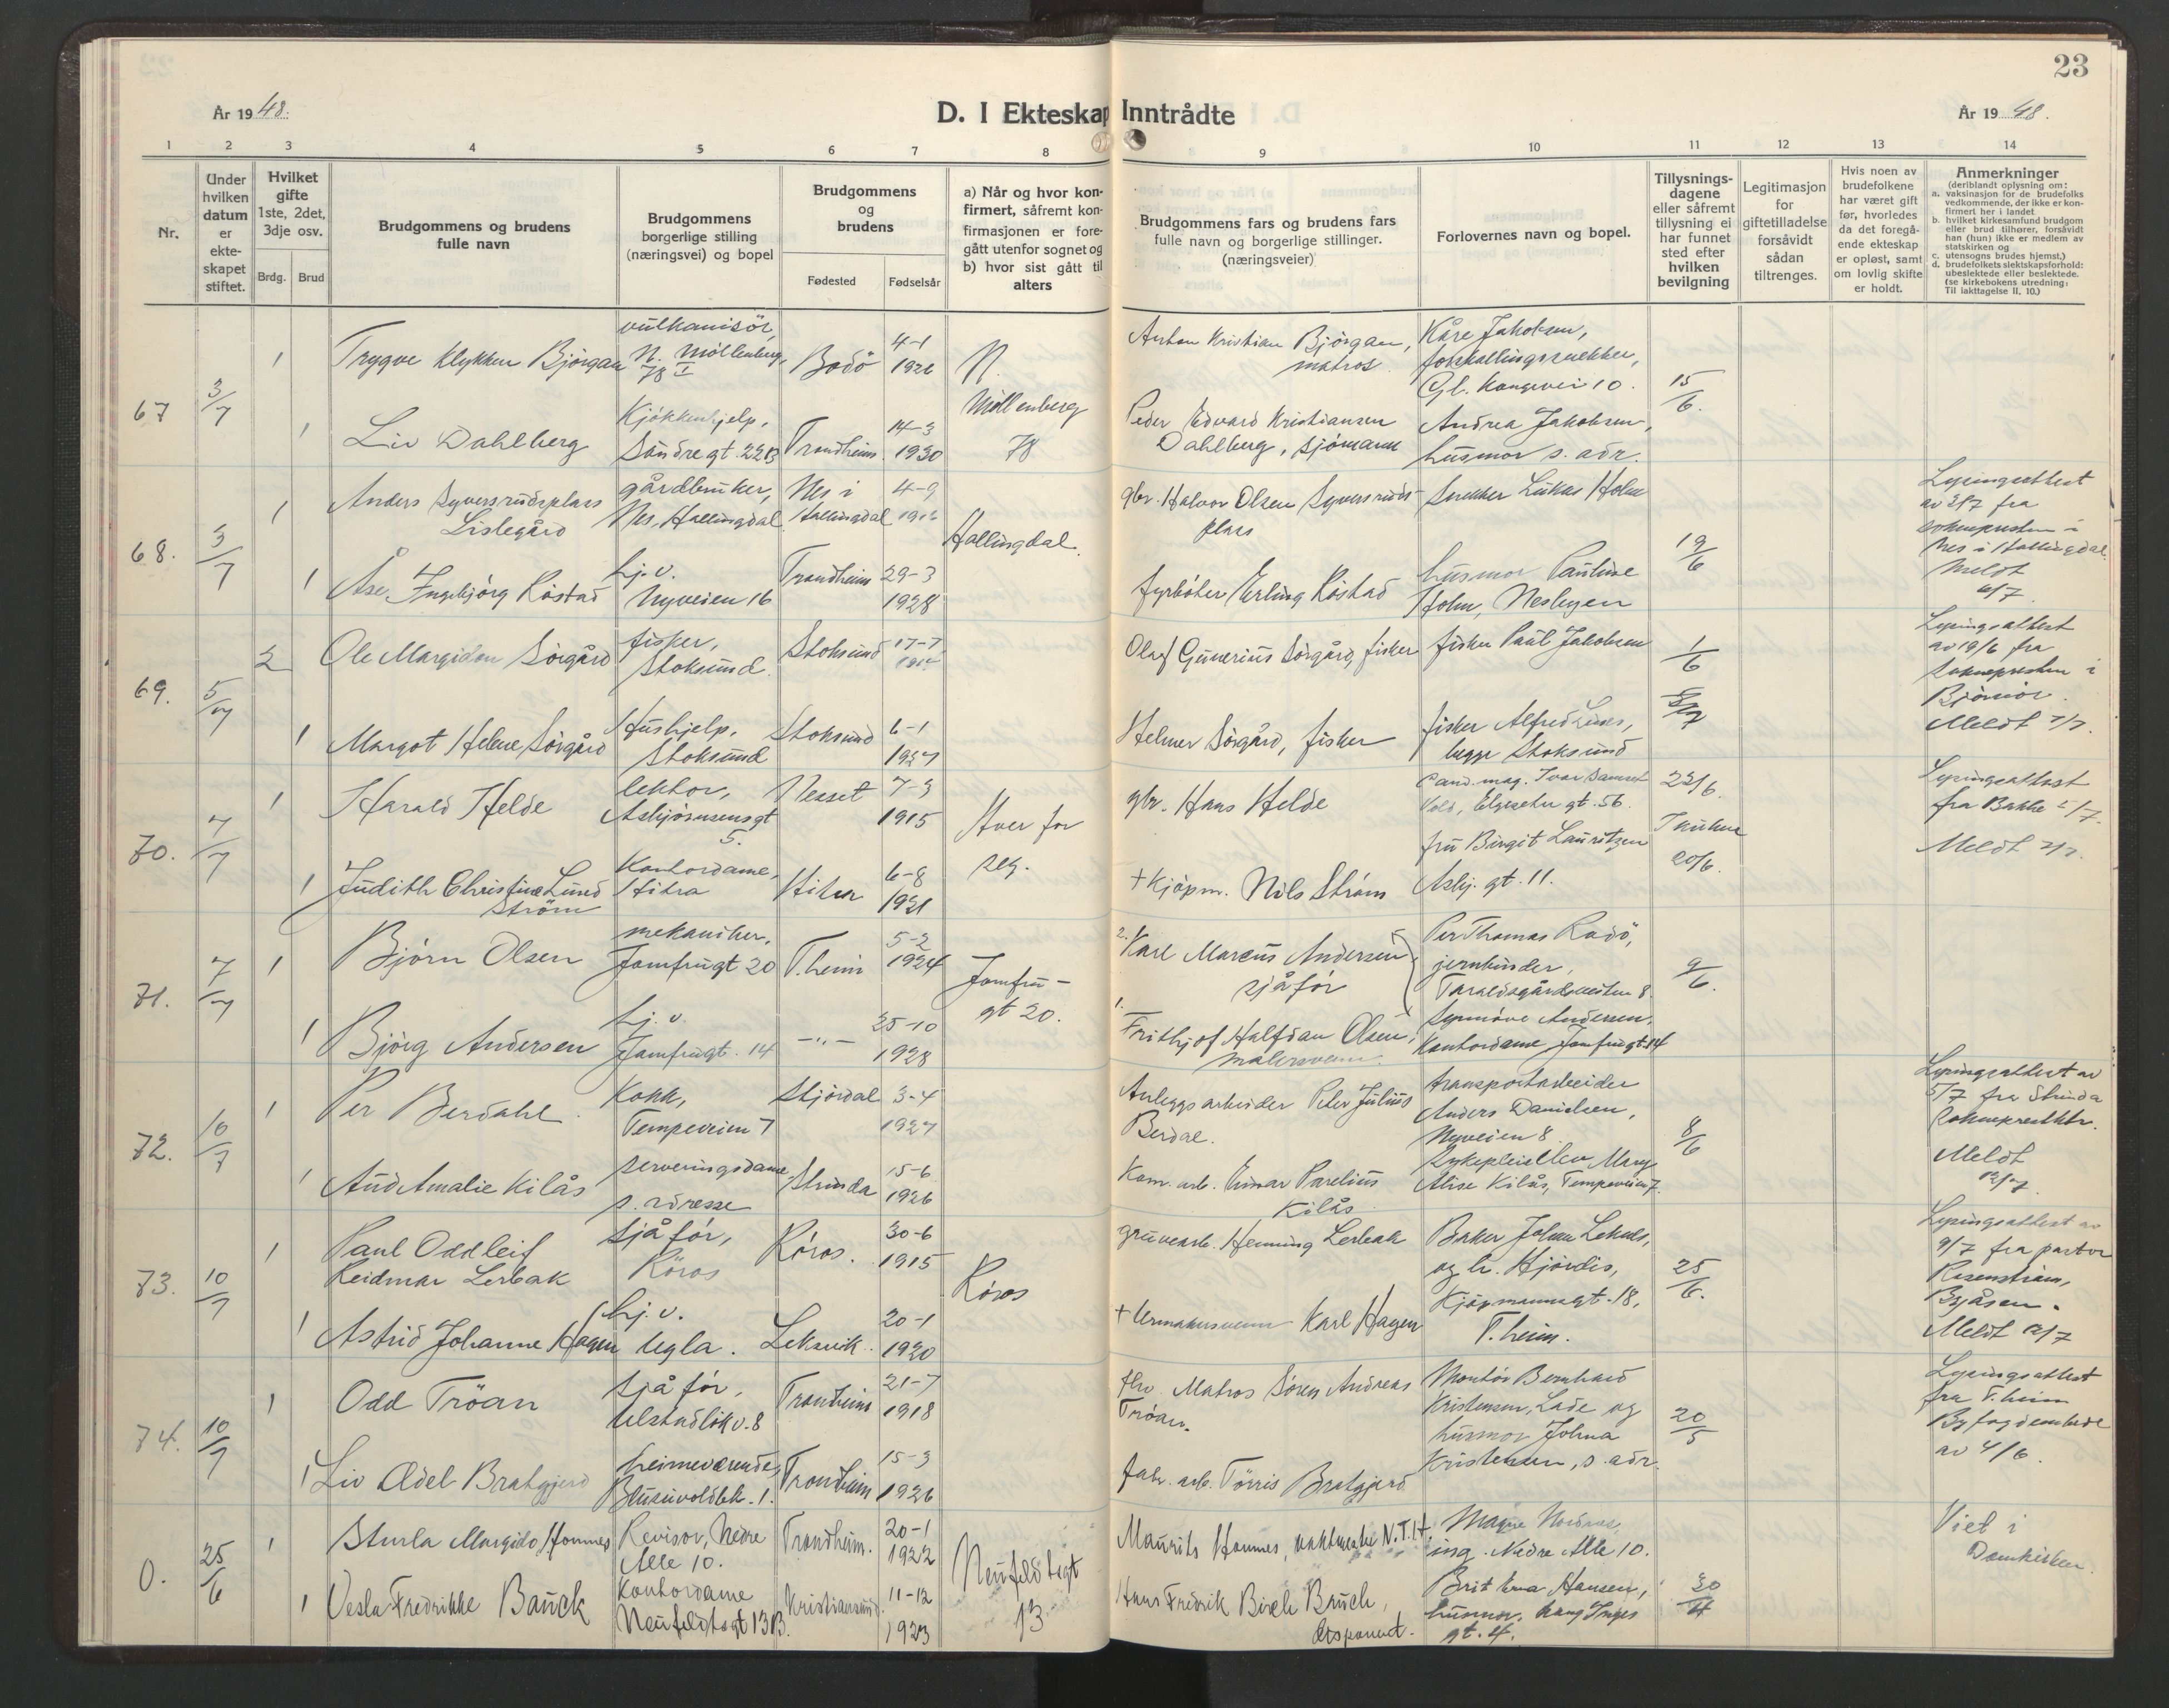 23
År 1948.
D. I Ekteskap Inntrådte
År 1948.
1 2 3 4 5 6 7 8 9 10 11 12 13 14
Nr.
Under hvilken datum er ekteskapet stiftet.
Hvilket gifte 1ste, 2det, 3dje osv.
Brdg. Brud
Brudgommens og brudens fulle navn
Brudgommens borgerlige stilling (næringsvei) og bopel
Brudgommens og brudens
Fødested Fødselsår
a) Når og hvor konfirmert, såfremt konfirmasjonen er foregått utenfor sognet og
b) hvor sist gått til alters
Brudgommens fars og brudens fars fulle navn og borgerlige stillinger. (næringsveier)
Forlovernes navn og bopel.
Tillysningsdagene eller såfremt tillysning ei har funnet sted efter hvilken bevilgning
Legitimasjon for giftetilladelse forsåvidt sådan tiltrenges.
Hvis noen av brudefolkene har været gift før, hvorledes da det foregående ekteskap er opløst, samt om lovlig skifte er holdt.
Anmerkninger
(deriblandt oplysning om:
a. vaksinasjon for de brudefolks vedkommende, der ikke er konfirmert her i landet
b. hvilket kirkesamfund brudgom eller brud tilhører, forsåvidt han (hun) ikke er medlem av statskirken og
c. utensogns brudes hjemst.)
d. brudefolkets slektskapsforhold: ubeslektede eller beslektede.
(se kirkebokens utredning: Til iakttagelse II. 10.)
67 3/7
1 Trygve Klykken Bjørgan
vulkanisør, N. Møllenberg 78 I
Bodø 4-1 1926
N. Møllenberg 78
Anton Kristian Bjørgan, matros
Kåre Jakobsen, Gl. Kongevei 10.
15/6.
1 Liv Dahlberg
Kjøkkenhjelp, Søndregt. 22B
Trondheim 14-3 1930
Peder Edvard Kristiansen Dahlberg, sjømann
Andrea Jakobsen, husmor s. adr.
68. 3/7
1 Anders Syversrudsplass Lislegård
gårdbruker, Nes, Hallingdal
Nes i Hallingdal 4-9
Hallingdal.
gbr. Halvor Olsen Syversrudsplass
Snekker Lukas Holm
19/6
Lysingsattest av 2/7 fra soknepresten i Nes i Hallingdal. Meldt
1 Åse Ingebjørg Røstad
hj.v. Nyveien 16
Trondheim 29-3 1928
fyrbøter Erling Røstad
husmor Pauline Holm,
69. 5/7
2 Ole Margidon Sørgård
fisker, Stoksund.
Stoksund 17-7
Olaf Gunerius Sørgård, fisker
fisker Paul Jakobsen
1/6
Lysingsattest av 19/6 fra soknepresten i Bjørnør. Meldt 7/7.
1 Margot Helene Sørgård
Hushjelp, Stoksund
Stoksund 6-1 1927
Helmer Sørgård, fisker
fisker Alfred begge Stoksund
70. 7/7
1 Harald Helde
lektor, Asbjørnsensgt 5.
Nesset 7-3 1915
Hver for seg.
gbr. Hans Helde
Cand. mag. Ivar Samset Vold, Elgeseter gt. 56.
23/6.
Lysingsattest fra Bakke 5/7. Meldt
1 Judith Christine Lund Strøm
Kontordame, Hitra
Hitra 6-8 1921
+ Kjøpm. Nils Strøm
fru Birgit Lauritzen Asbj. gt. 11.
20/6.
71. 7/7
1 Bjørn Olsen
mekaniker, Jomfrugt 20
T.heim 5-2 1924
Jomfrugt 20.
2. Karl Marcus Andersen sjåfør
Per Thomas Radø, jernbinder, Taraldsgårdsveiten 8.
9/6.
1 Bjørg Andersen
hj.v. Jomfrugt. 14
—"— 25-10 1928
1. Frithjof Halfdan Olsen, malersvenn
Synnøve Andersen, Kontordame Jomfrugt. 14
72. 10/7
1 Per Berdahl
Kokk, Tempeveien 7
Stjørdal 3-4 1927
Anleggsarbeider Peter Julius Berdal.
transportarbeider Anders Danielsen, Nyveien 8
8/6
Lysingsattest av 5/7 fra Strinda Sokneprestktr. Meldt 12/7
1 Aud Amalie Kilås
serveringsdame, s. adresse
Strinda 15-6 1926
Kom. arb. Einar Parelius Kilås
Sykepleiersken Mary Alise Kilås, Tempeveien 7.
73. 10/7
1 Paul Oddleif Reidmar Lerbak
sjåfør, Røros
Røros. 30-6 1915
Røros
gruvearb. Henning Lerbak
Baker Johan og fr. Hjørdis, Kjøpmannsgt. 18, T.heim.
25/6.
Lysingsattest av 9/7 fra pastor Rosenstrøm, Byåsen. Meldt 12/7
1 Astrid Johanne Hagen
hj.v. Ugla.
Leksvik 20-1 1920
+ Urmakersvenn Karl Hagen
74. 10/7
1 Odd Trøan
sjåfør,
Trondheim 21-7 1918
fhv. Matros Søren Andreas Trøan.
Montør Bernhard Kristensen, Lade og husmor Johna Kristensen, s. adr.
20/5
Lysingsattest fra T.heim Byfogdembede av 4/6.
1 Liv Ædel Bratgjerd
heimeværende, Blusuvoldbk. 1.
Trondheim 15-3 1926
fabr. arb. Tørris Bratgjerd
0. 25/6
1 Sturla Margido Hommes
Revisor, Nedre Alle 10.
Trondheim. 20-1 1922
Neufeldtsgt 13
Maurits Hommes, vaktmester N.T.H.
Magne ing. Nedre Alle 10.
30/4
Viet i Domkirken
1 Vesla Fredrikke Bauck
Kontordame Neufeldtsgt 13B.
Kristiansund 11-12 1923
Hans Fredrik Birch Bauck, disponent.
Brit Eva Hansen, husmor, Kong Inges gt. 4.